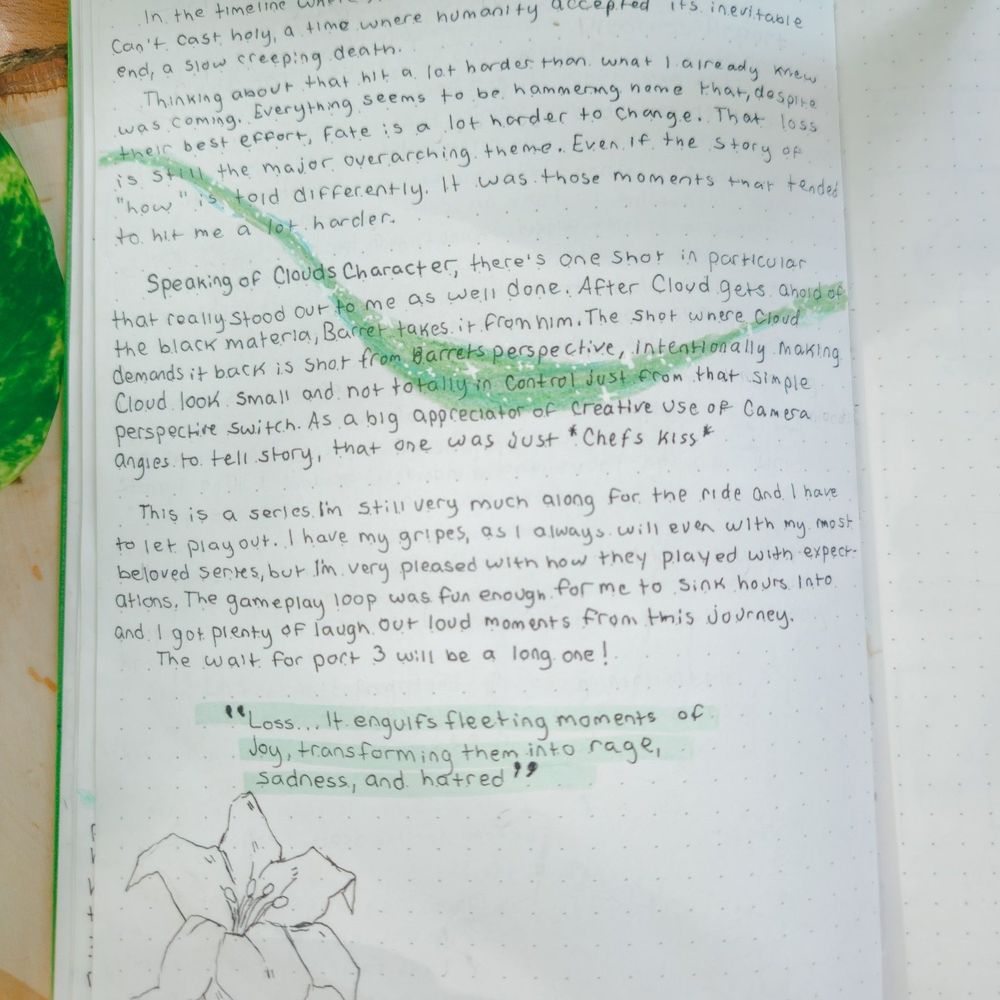 In the timeline where
Can't cast holy, a time where humanity accepted its inevitable
end, a slow creeping death.
Thinking about that hit a lot harder than what I already knew
was coming. Everything seems to be hammering home that, despite
their best effort, Fate is a lot harder to change. That loss
is still the major overarching theme. Even if the story of
"how" is told differently. It was those moments that tended
to hit me a lot harder.
Speaking of Clouds Character, there's one shot in particular
that really stood out to me as well done. After Cloud gets ahold of
the black materia, Barret takes it from him. The shot where Cloud
demands it back is shot from Barrets perspective, intentionally making
Cloud look small and not totally in control just from that simple
perspective switch. As a big appreciator of creative use of camera
angles to tell story, that one was just *Chefs kiss*
This is a series I'm still very much along for the ride and I have
to let play out. I have my gripes, as I always will even with my most
beloved series, but I'm very pleased with how they played with expect-
ations. The gameplay loop was fun enough for me to sink hours into
and I got plenty of laugh out loud moments from this journey.
The wait for part 3 will be a long one!
"Loss... It engulfs fleeting moments of
Joy, transforming them into rage,
sadness, and hatred"